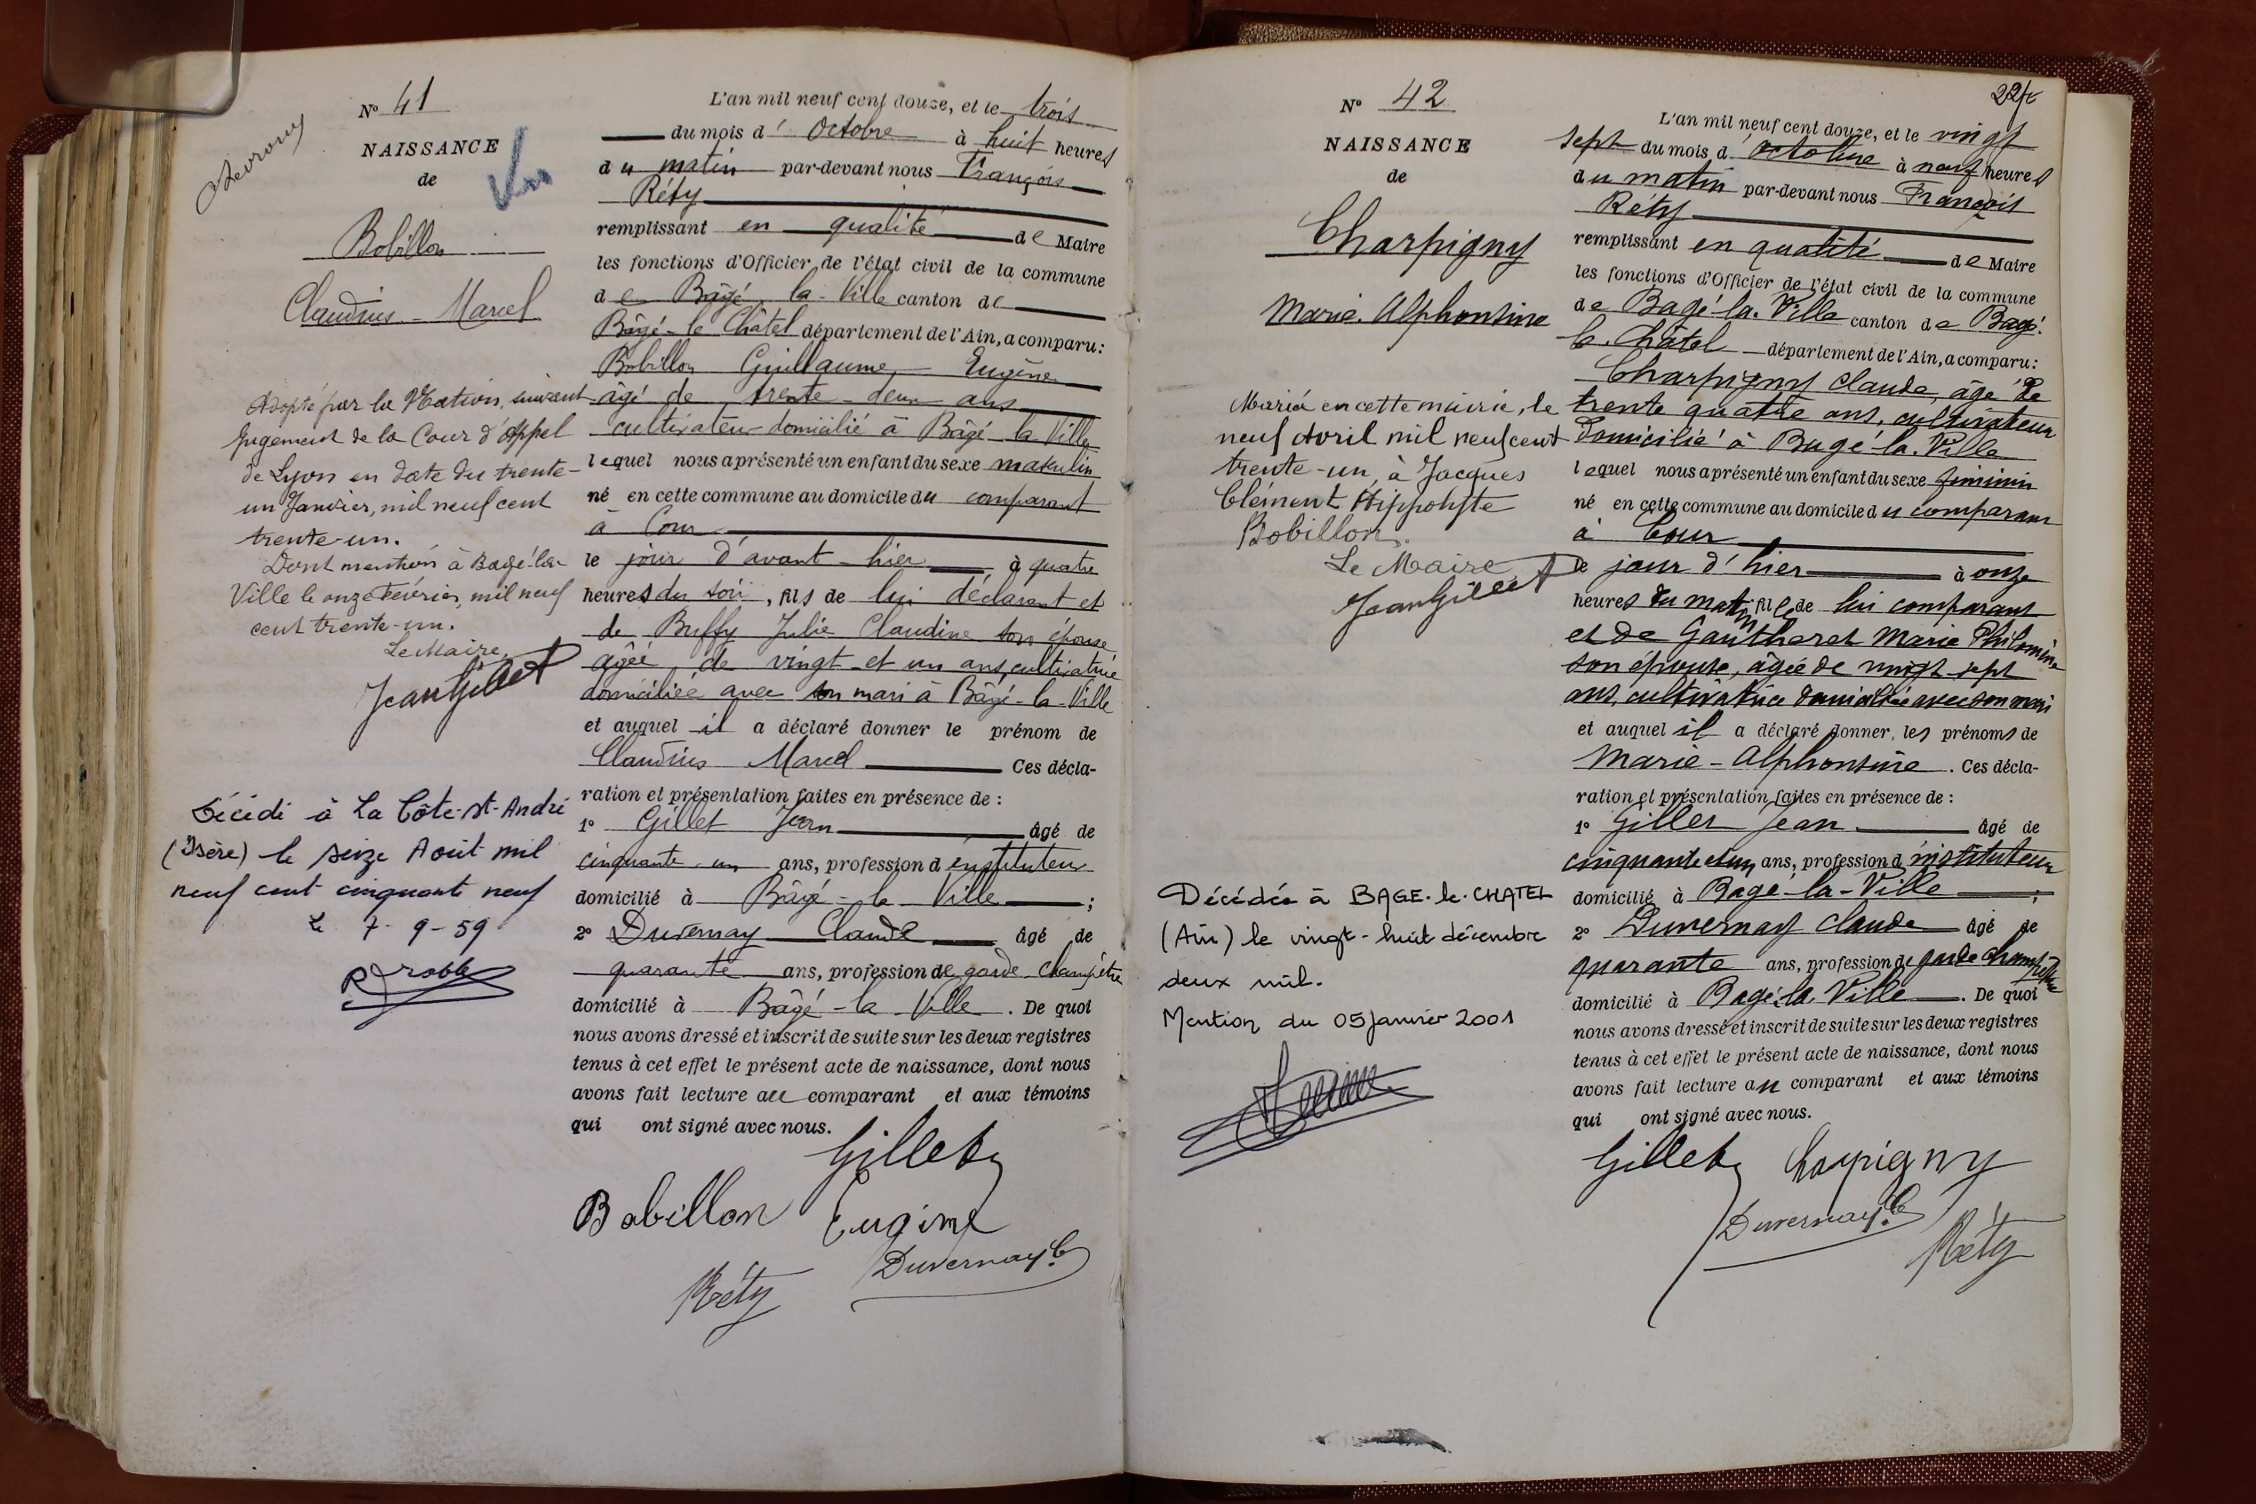 Nº 41
NAISSANCE
de
Bobillon
Claudius - Marcel
Adopté par la Nation, suivant
jugement de la Cour d'Appel
de Lyon en date du trente-
un Janvier, mil neuf cent
trente-un.
Dont mention à Bagé-la-
Ville le onze Février, mil neuf
cent trente-un.
Le Maire,
Jean Gillet
Décédé à La Côte-St-André
(Isère) le seize Août mil
neuf cent cinquante neuf
Le 7-9-59
L'an mil neuf cent douze, et le trois
du mois d'Octobre à huit heures
du matin par-devant nous François
Réty
remplissant en qualité de Maire
les fonctions d'Officier de l'état civil de la commune
de Bâgé-la-Ville canton de
Bâgé-le-Châtel département de l'Ain, a comparu :
Bobillon Guillaume Eugène
âgé de trente-deux ans
cultivateur domicilié à Bâgé-la-Ville
lequel nous a présenté un enfant du sexe maskulin
né en cette commune au domicile du comparant
à Cour
le jour d'avant-hier à quatre
heures du soir, fils de lui déclarant et
de Buffy Julie Claudine son épouse
âgée de vingt-et un ans, cultivatrice
domiciliée avec son mari à Bâgé-la-Ville
et auquel il a déclaré donner le prénom de
Claudius Marcel Ces décla-
ration et présentation faites en présence de :
1º Gillet Jean âgé de
cinquante-un ans, profession d'instituteur
domicilié à Bâgé-la-Ville ;
2º Duvernay Claude âgé de
quarante ans, profession de garde-champêtre
domicilié à Bâgé-la-Ville. De quoi
nous avons dressé et inscrit de suite sur les deux registres
tenus à cet effet le présent acte de naissance, dont nous
avons fait lecture au comparant et aux témoins
qui ont signé avec nous.
Gillet
Bobillon Eugène
Duvernay C.
Réty
Nº 42
NAISSANCE
de
Charpigny
Marie-Alphonsine
Mariée en cette mairie, le
neuf Avril mil neuf cent
trente-un, à Jacques
Clément Hippolyte
Bobillon.
Le Maire
Jean Gillet
Décédée à BAGE-le-CHATEL
(Ain) le vingt-huit décembre
deux mil.
Mention du 05 janvier 2001
L'an mil neuf cent douze, et le vingt
sept du mois d'octobre à neuf heures
du matin par-devant nous François
Réty
remplissant en qualité de Maire
les fonctions d'Officier de l'état civil de la commune
de Bagé-la-Ville canton de Bagé-
le-Châtel département de l'Ain, a comparu :
Charpigny Claude, âgé de
trente quatre ans, cultivateur
domicilié à Bagé-la-Ville
lequel nous a présenté un enfant du sexe féminin
né en cette commune au domicile du comparant
à Cour
le jour d'hier à onze
heures du matin fille de lui comparant
et de Gautheret Marie Philomène
son épouse, âgée de vingt-sept
ans, cultivatrice domiciliée avec son mari
et auquel il a déclaré donner, les prénoms de
Marie-Alphonsine. Ces décla-
ration et présentation faites en présence de :
1º Gillet Jean âgé de
cinquante et un ans, profession d'instituteur
domicilié à Bagé-la-Ville ;
2º Duvernay Claude âgé de
quarante ans, profession de garde champêtre
domicilié à Bagé-la-Ville. De quoi
nous avons dressé et inscrit de suite sur les deux registres
tenus à cet effet le présent acte de naissance, dont nous
avons fait lecture au comparant et aux témoins
qui ont signé avec nous.
Gillet Charpigny
Duvernay C.
Réty